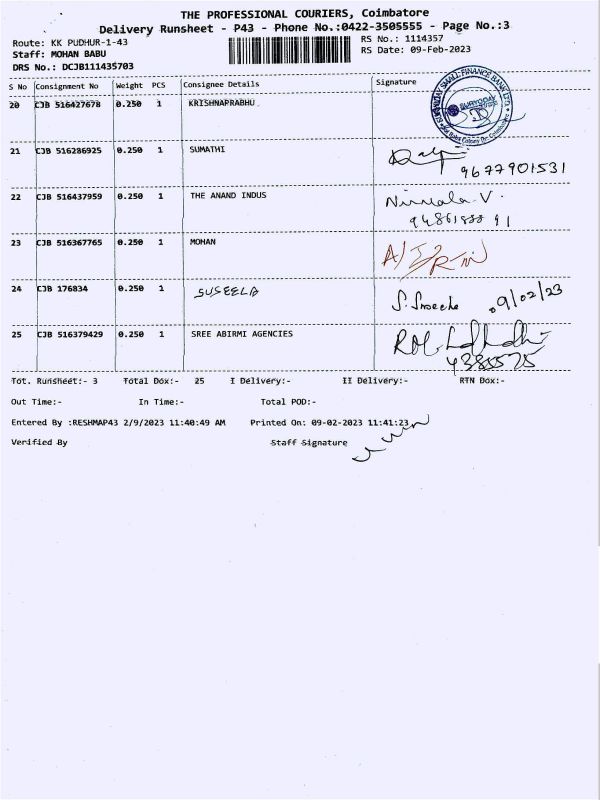 THE PROFESSIONAL COURIERS, Coimbatore
Delivery Runsheet - P43 - Phone No.:0422-3505555 - Page No.:3
Route: KK PUDHUR-1-43
RS No.: 1114357
Staff: MOHAN BABU
RS Date: 09-Feb-2023
DRS No.: DCJB111435703
S No Consignment No Weight PCS Consignee Details Signature
20 CJB 516427678 0.250 1 KRISHNAPRABHU
SURYODAY SMALL FINANCE BANK LTD.
21 CJB 516286925 0.250 1 SUMATHI
9677901531
22 CJB 516437959 0.250 1 THE ANAND INDUS Nirmala V.
23 CJB 516367765 0.250 1 MOHAN
24 CJB 176834 0.250 1 SUSEELA
09/02/23
25 CJB 516379429 0.250 1 SREE ABIRMI AGENCIES
Tot. Runsheet:- 3 Total Dox:- 25 I Delivery:- II Delivery:- RTN Dox:-
Out Time:- In Time:- Total POD:-
Entered By :RESHMAP43 2/9/2023 11:40:49 AM Printed On: 09-02-2023 11:41:23
Verified By Staff Signature